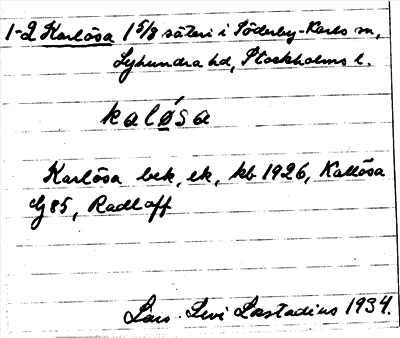 1-2 Karlösa 1 5/8 säteri i Söderby-Karls sn,
Lyhundra hd, Stockholms l.
kalǿsa
Karlösa bek, ek, kb 1926, Kallösa
Gj 85, Radloff
Lars Levi Læstadius 1934.